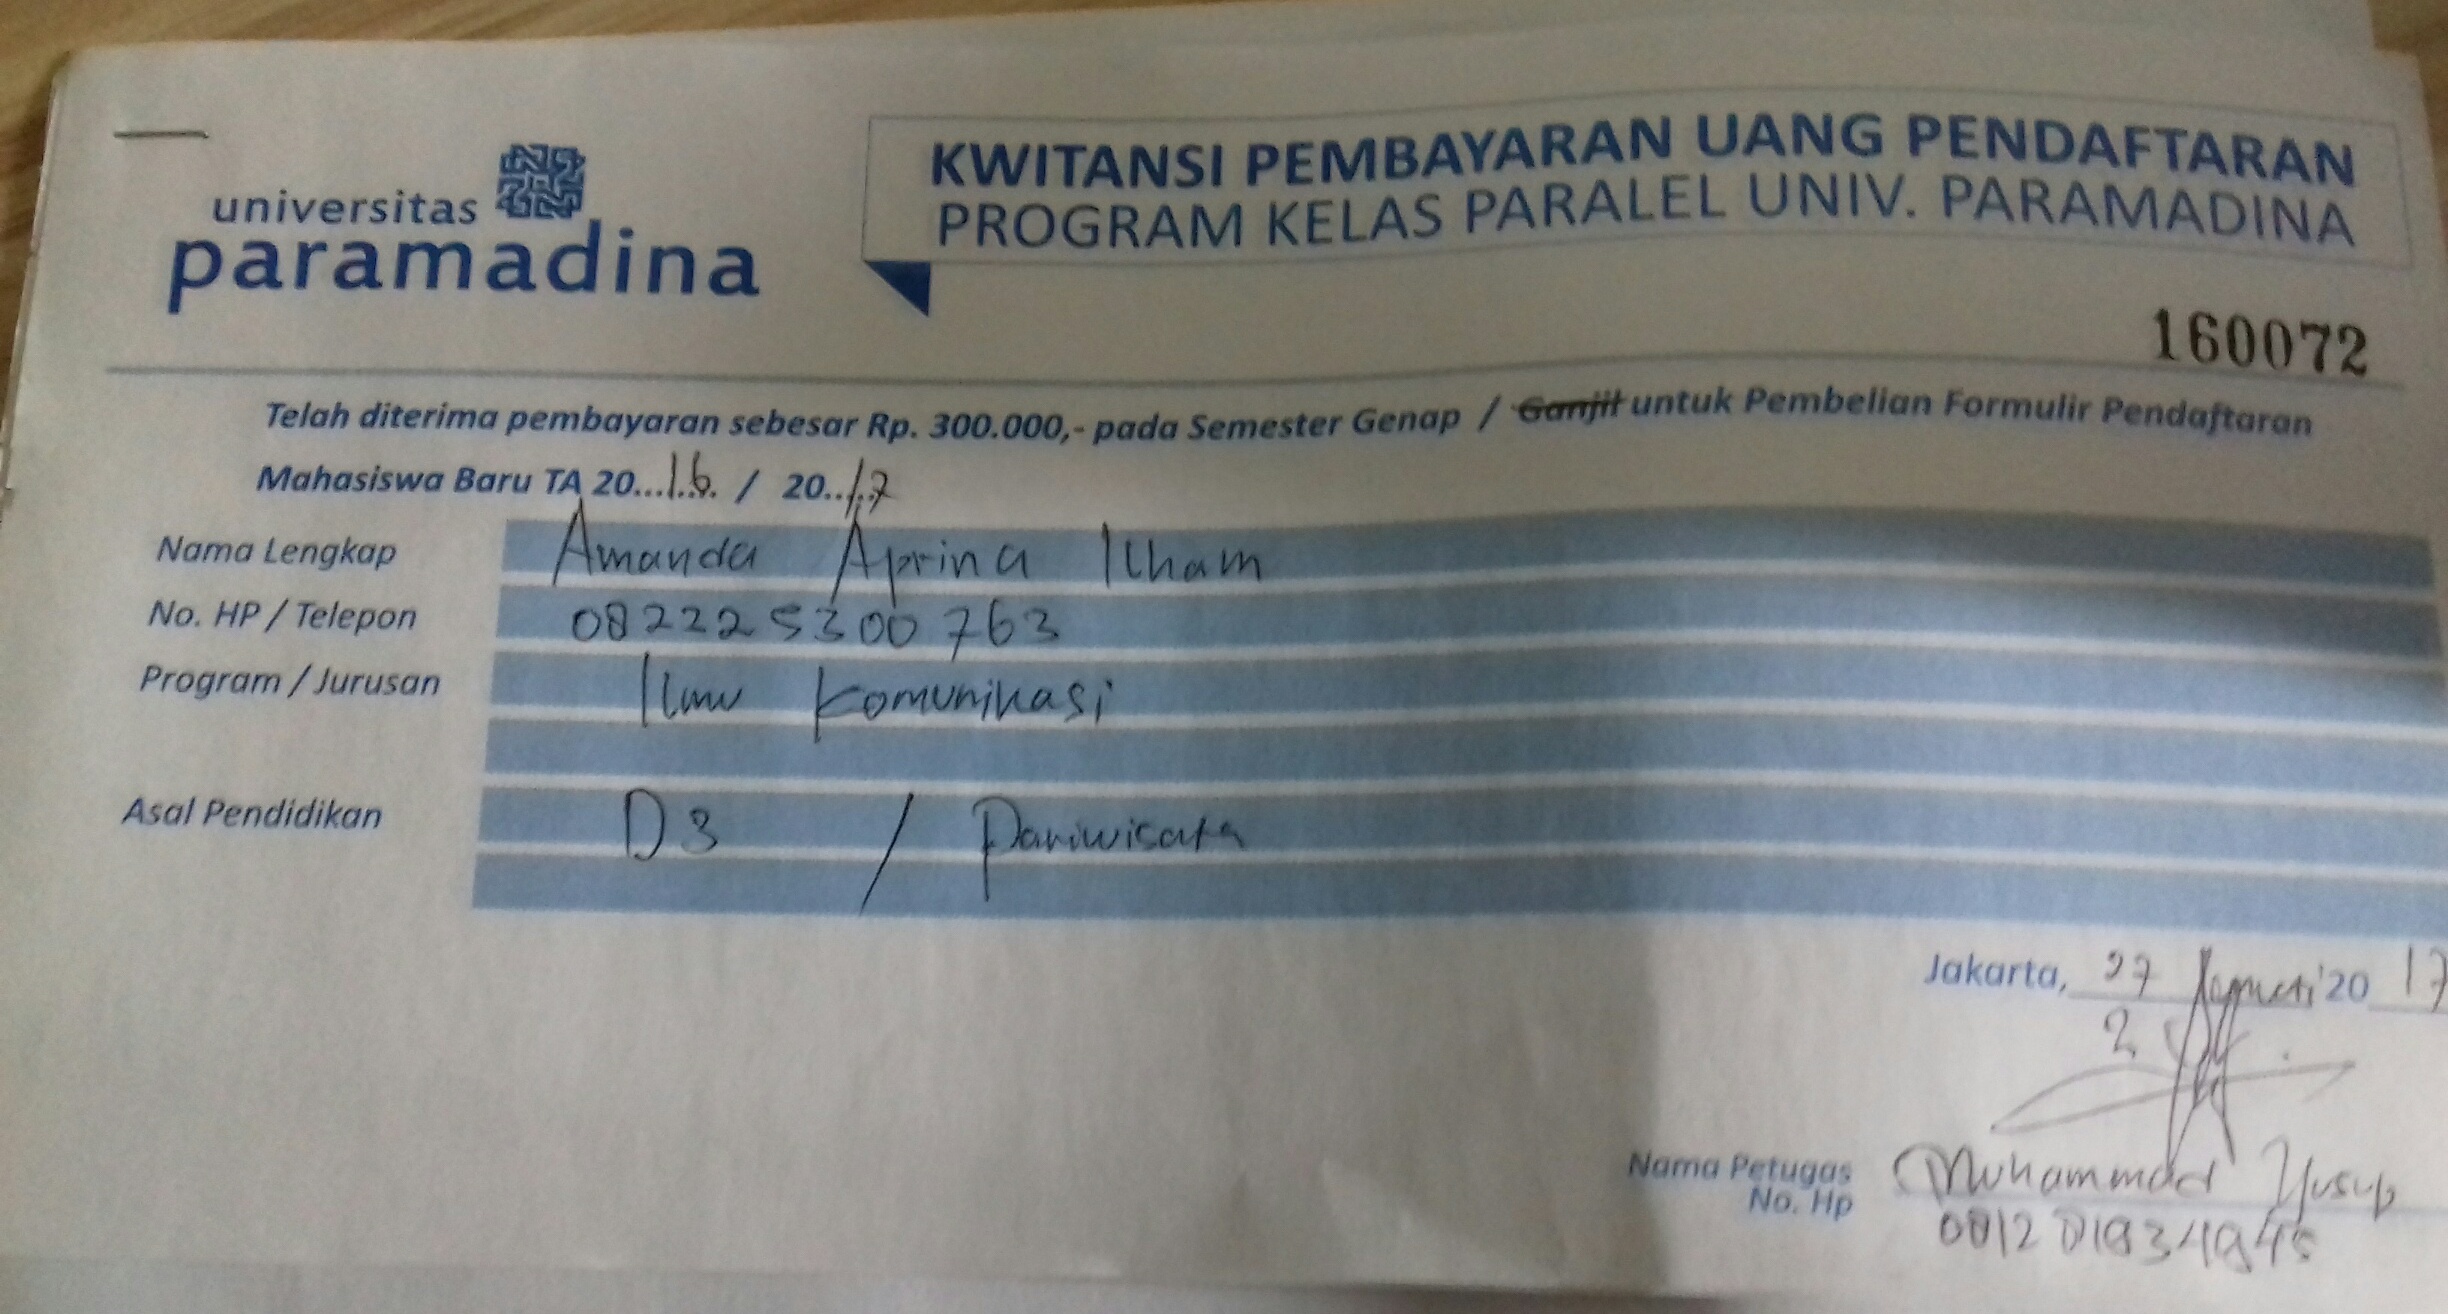 universitas
paramadina
KWITANSI PEMBAYARAN UANG PENDAFTARAN
PROGRAM KELAS PARALEL UNIV. PARAMADINA
160072
Telah diterima pembayaran sebesar Rp. 300.000,- pada Semester Genap / Ganjil untuk Pembelian Formulir Pendaftaran
Mahasiswa Baru TA 20...16. / 20..17
Nama Lengkap Amanda Aprina Ilham
No. HP / Telepon 082225300763
Program / Jurusan Ilmu Komunikasi
Asal Pendidikan D3 / Pariwisata
Jakarta, 27 20 17
2
Nama Petugas Muhammad Yusup
No. Hp